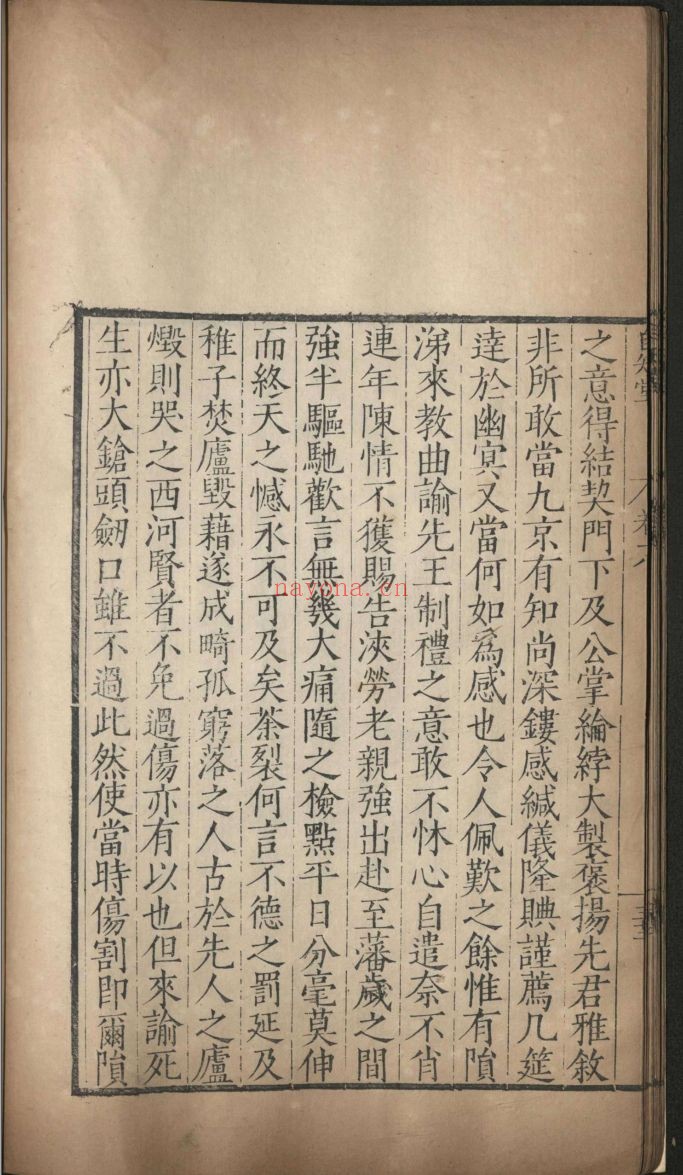 之意得結契門下及公掌綸綍大製褒揚先君雅敘
非所敢當九京有知尚深鏤感緘儀隆賟謹薦几筵
達於幽冥又當何如為感也令人佩歎之餘惟有隕
涕來教曲諭先王制禮之意敢不怵心自遣奈不肖
連年陳情不獲賜告浹勞老親強出赴至藩歲之間
強半驅馳歡言無幾大痛隨之檢點平日分毫莫伸
而終天之憾永不可及矣荼裂何言不德之罰延及
稚子焚廬毀藉遂成畸孤窮落之人古於先人之廬
燬則哭之西河賢者不免過傷亦有以也但來諭死
生亦大鎗頭劒口雖不過此然使當時傷割即爾隕
nayona.cn